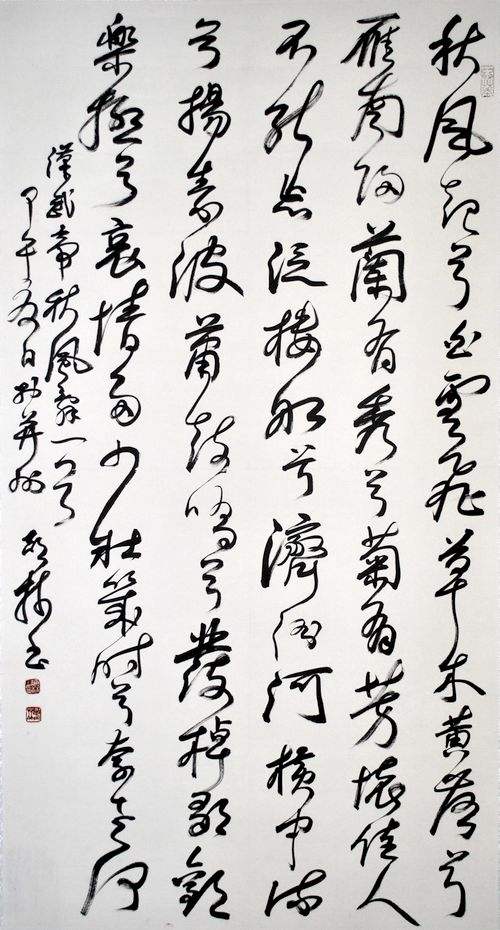 秋风起兮白雲飛草木黄落兮
雁南归蘭有秀兮菊有芳懷佳人
不能忘泛楼船兮濟汾河横中流
兮揚素波萧鼓鸣兮發棹歌歡
樂極兮哀情多少壯幾时兮奈老何
漢武帝秋風辞一首
甲午夏日於并州 林书